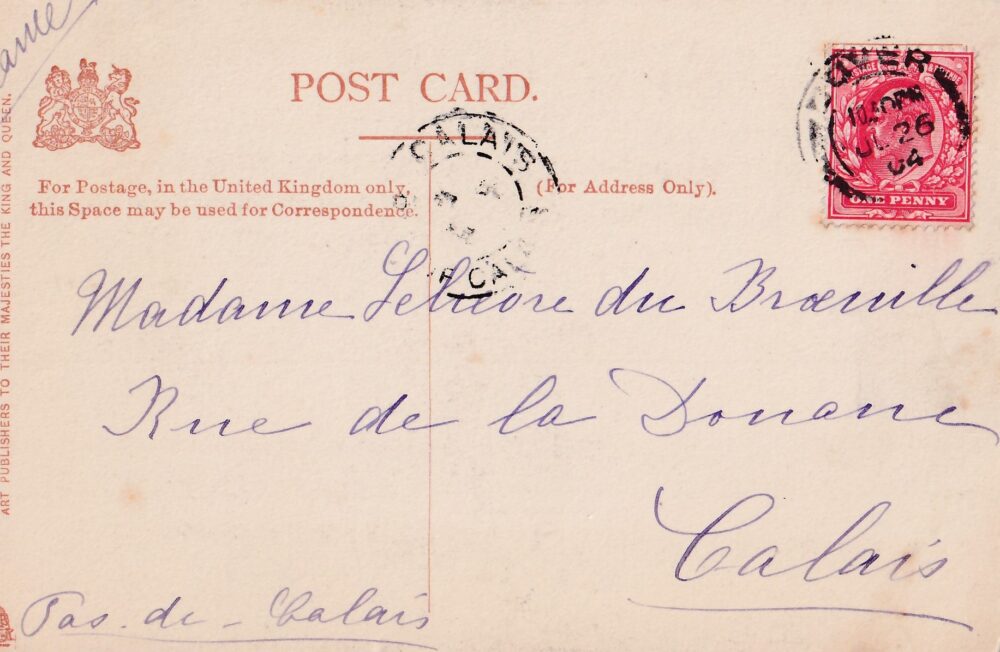 POST CARD.
For Postage, in the United Kingdom only,
this Space may be used for Correspondence.
(For Address Only).
ART PUBLISHERS TO THEIR MAJESTIES THE KING AND QUEEN.
CALAIS
DOVER
10.30PM
JL 26
04
POSTAGE REVENUE
ONE PENNY
Madame Lelievre du Brœuille
Rue de la Douane
Calais
Pas-de-Calais